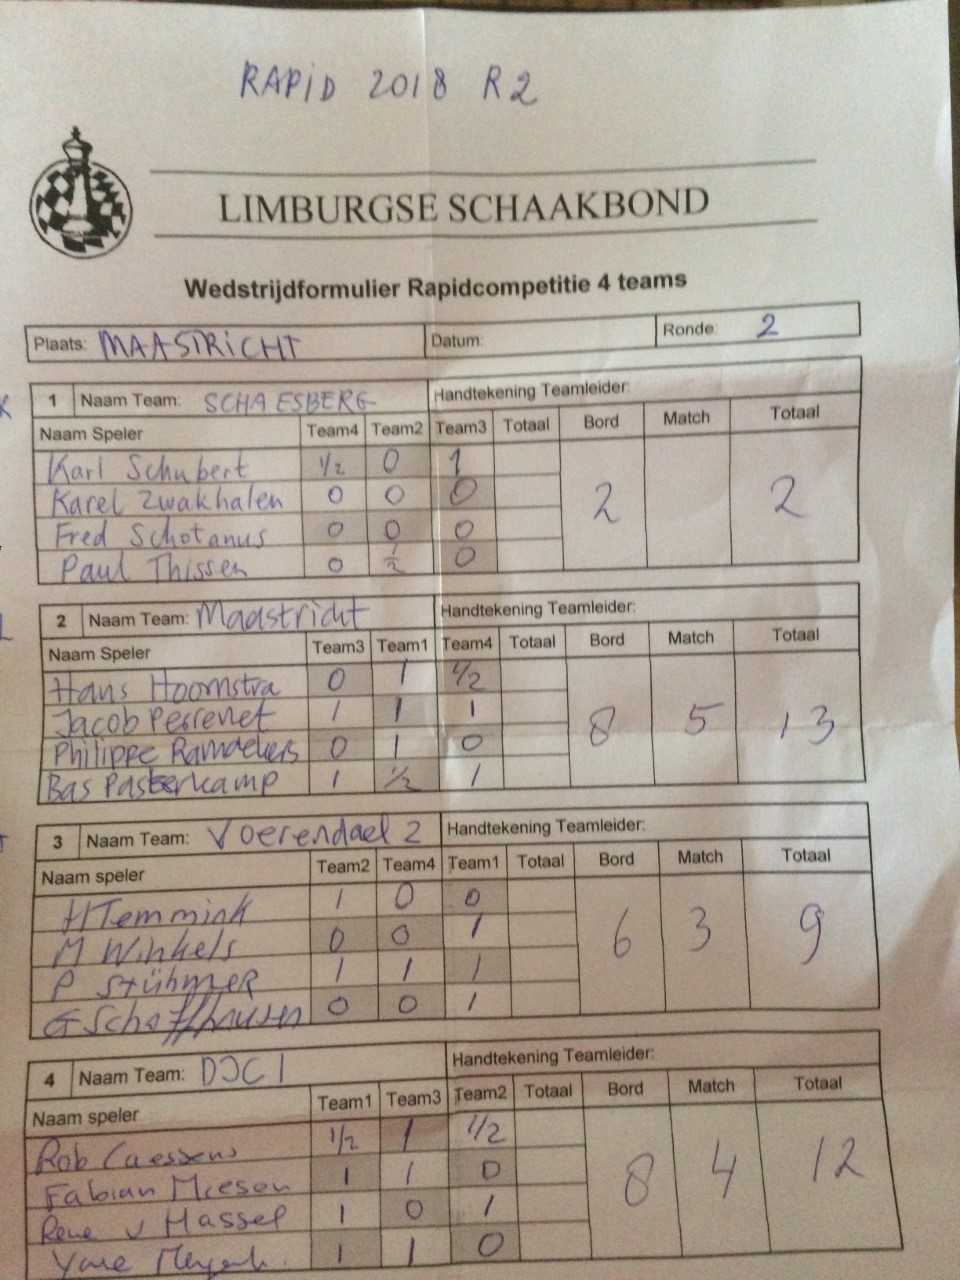 RAPID 2018 R2
LIMBURGSE SCHAAKBOND
Wedstrijdformulier Rapidcompetitie 4 teams
Plaats: MAASTRICHT Datum: Ronde: 2
1 Naam Team: SCHAESBERG Handtekening Teamleider:
Naam Speler Team4 Team2 Team3 Totaal Bord Match Totaal
Karl Schubert 1/2 0 1
Karel Zwakhalen 0 0 0
Fred Schotanus 0 0 0
Paul Thissen 0 1/2 0
2 2
2 Naam Team: Maastricht Handtekening Teamleider:
Naam Speler Team3 Team1 Team4 Totaal Bord Match Totaal
Hans Hoornstra 0 1 1/2
Jacob Perrenet 1 1 1
Philippe 0 1 0
Bas Pasterkamp 1 1/2 1
8 5 13
3 Naam Team: Voerendael 2 Handtekening Teamleider:
Naam speler Team2 Team4 Team1 Totaal Bord Match Totaal
H Temmink 1 0 0
M Winkels 0 0 1
P Stühmer 1 1 1
0 0 1
6 3 9
4 Naam Team: DJC 1 Handtekening Teamleider:
Naam speler Team1 Team3 Team2 Totaal Bord Match Totaal
Rob Caessens 1/2 1 1/2
Fabian Meesen 1 1 0
Rene v Hassel 1 0 1
1 1 0
8 4 12